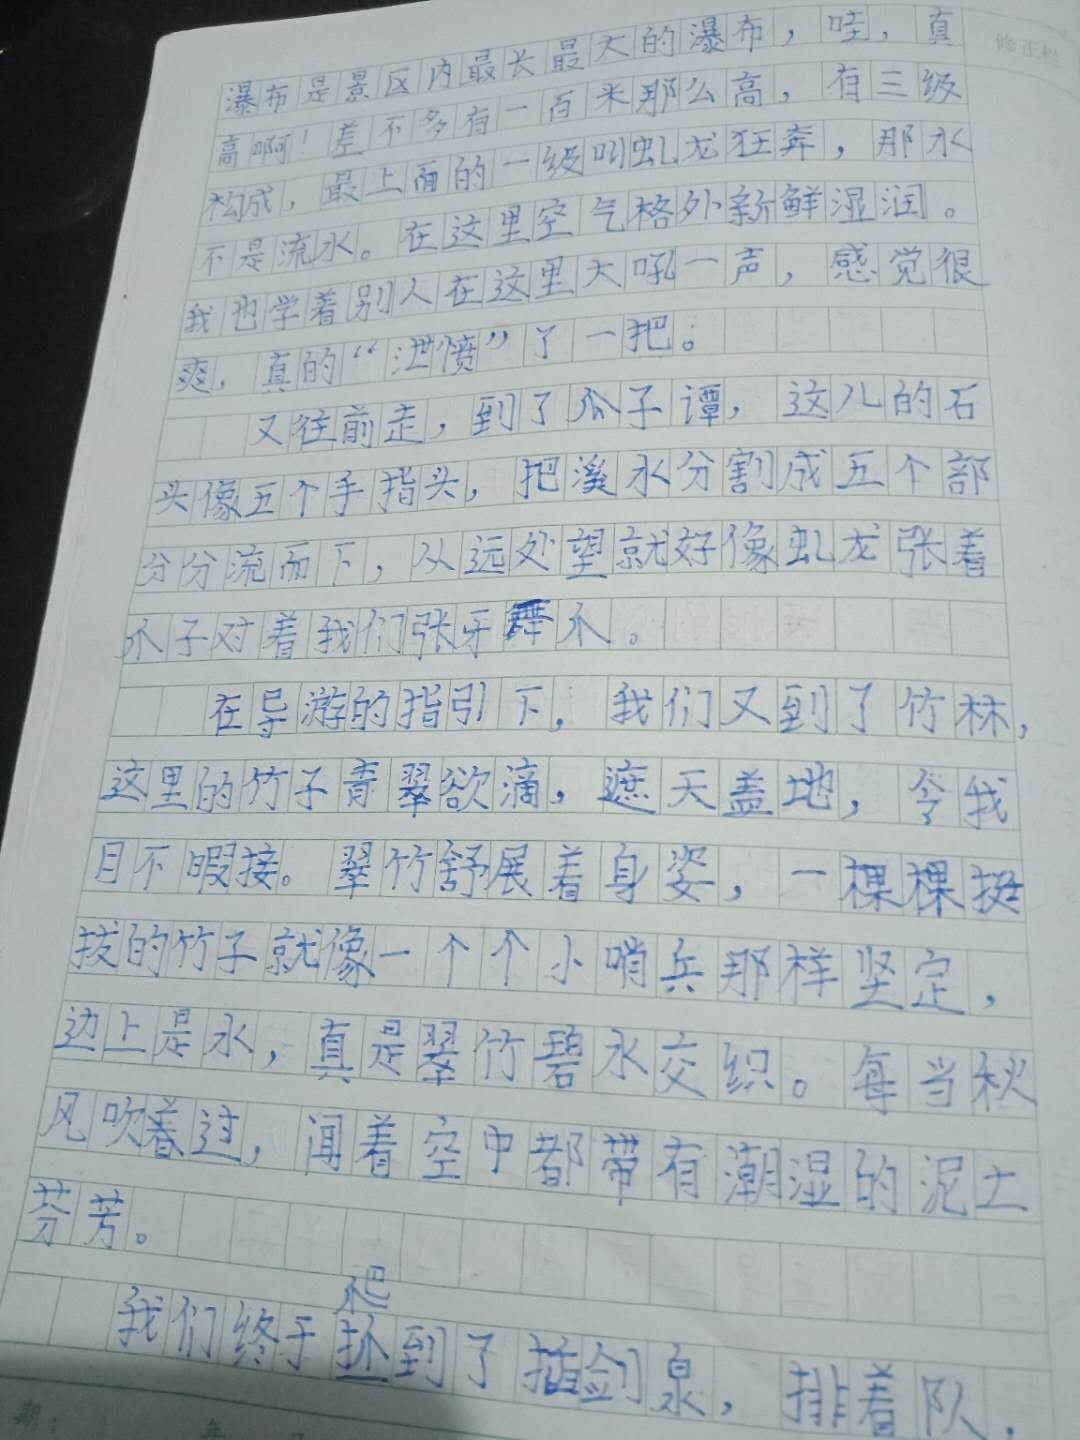 修正栏
瀑布是景区内最长最大的瀑布，哇，真
高啊！差不多有一百米那么高，有三级
构成，最上面的一级叫虬龙狂奔，那水
不是流水。在这里空气格外新鲜湿润。
我也学着别人在这里大吼一声，感觉很
爽，真的“泄愤”了一把。
又往前走，到了爪子谭，这儿的石
头像五个手指头，把溪水分割成五个部
分分流而下，从远处望就好像虬龙张着
爪子对着我们张牙舞爪。
在导游的指引下，我们又到了竹林，
这里的竹子青翠欲滴，遮天盖地，令我
目不暇接。翠竹舒展着身姿，一棵棵挺
拔的竹子就像一个个小哨兵那样坚定，
边上是水，真是翠竹碧水交织。每当秋
风吹着过，闻着空中都带有潮湿的泥土
芬芳。
爬
我们终于扒到了插剑泉，排着队，
期： 年